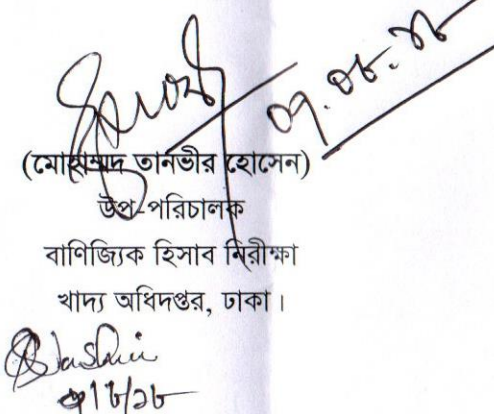 ০৭.০৮.১৮
(মোহাম্মদ তানভীর হোসেন)
উপ-পরিচালক
বাণিজ্যিক হিসাব নিরীক্ষা
খাদ্য অধিদপ্তর, ঢাকা।